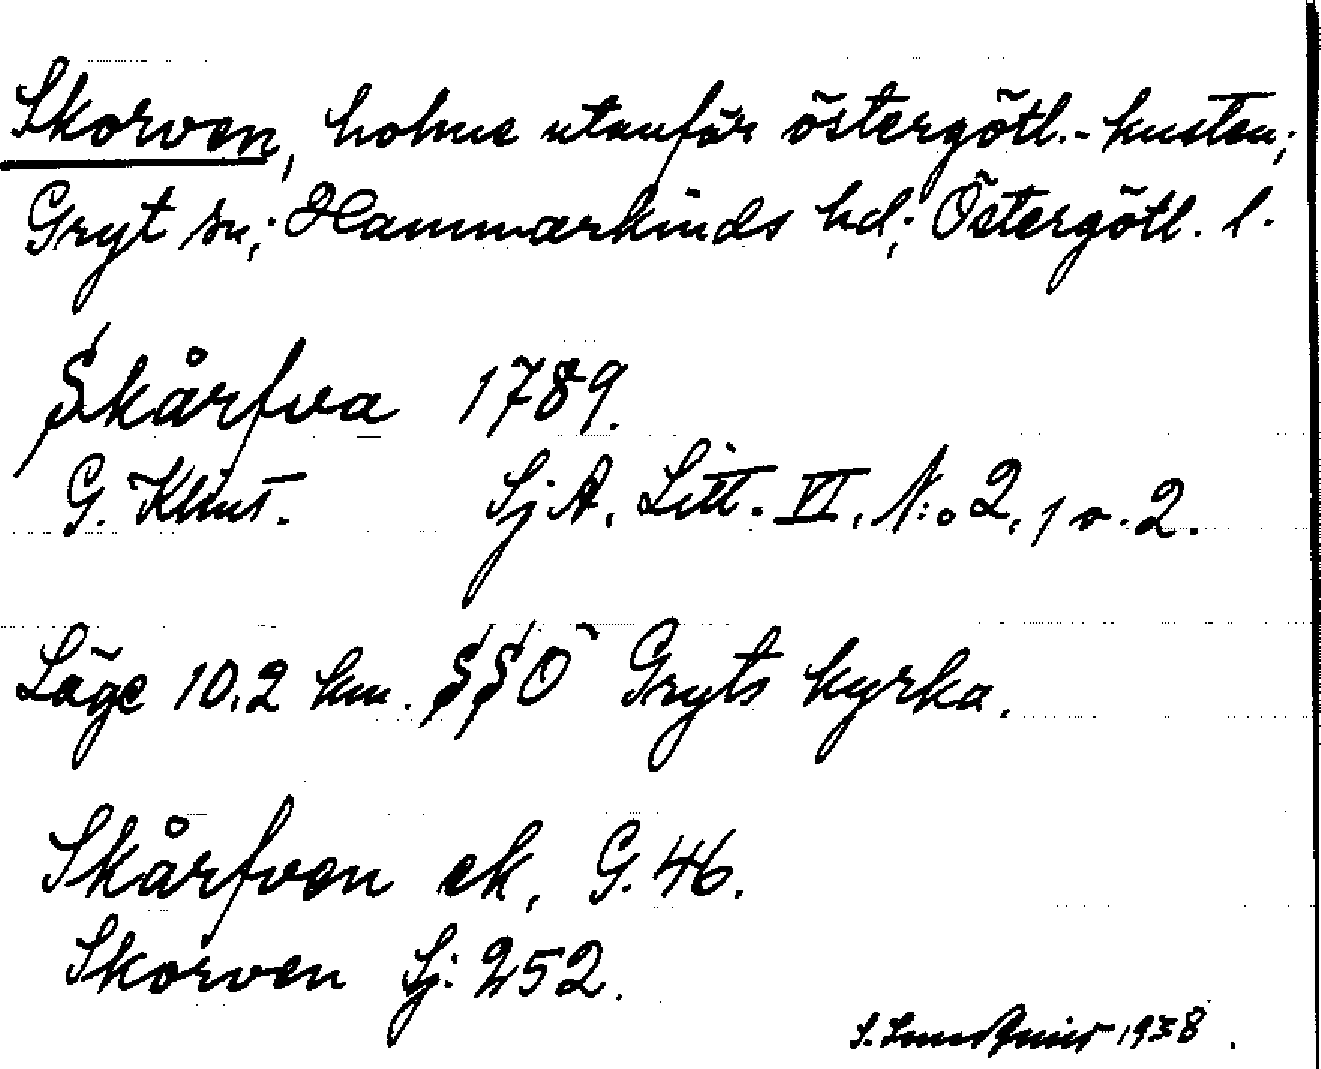 Skorven, holme utanför östergötl.-kusten;
Gryt sn; Hammarkinds hd; Östergötl. l.
Skårfva 1789.
G. Klint. SjA. Litt. VI. N:o 2, 1 o. 2.
Läge 10.2 km. SSO Gryts kyrka.
Skårfven ek, G. 46.
Skorven Sj: 252.
S. 1938.